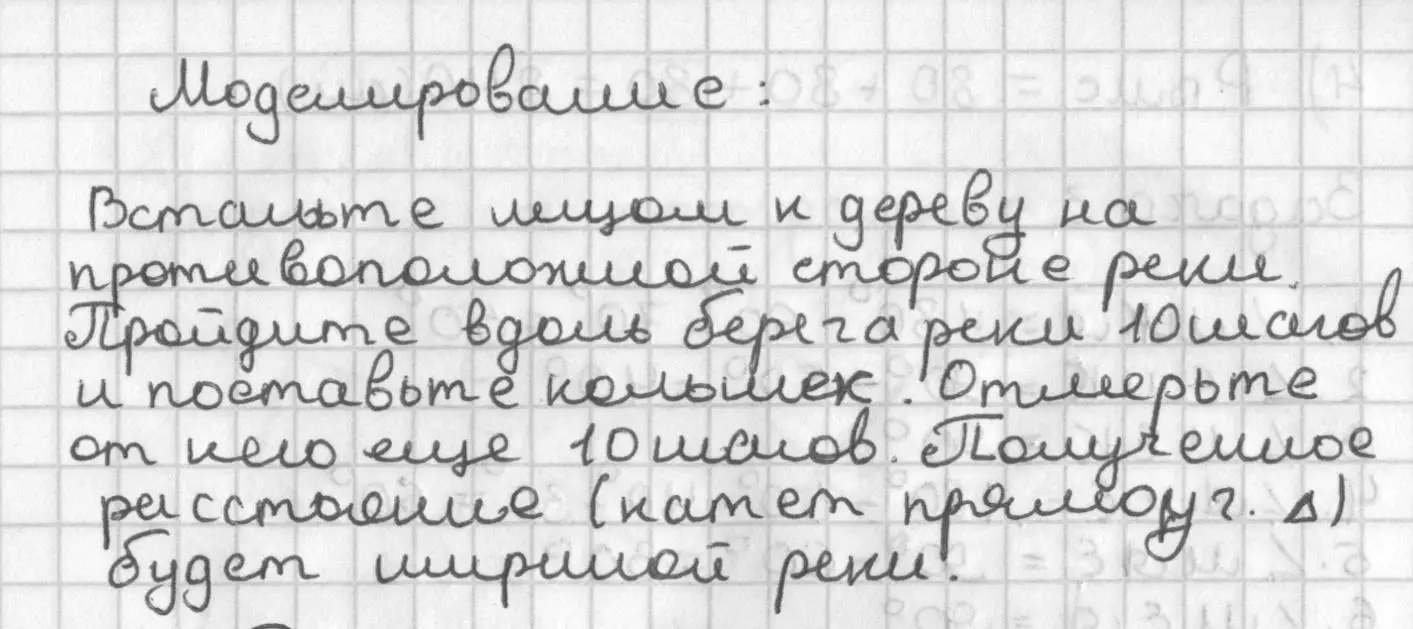 Моделирование:
Встаньте лицом к дереву на
противоположной стороне реки.
Пройдите вдоль берега реки 10 шагов
и поставьте колышек. Отмерьте
от него еще 10 шагов. Полученное
расстоение (катет прямоуг. Δ)
будет шириной реки.